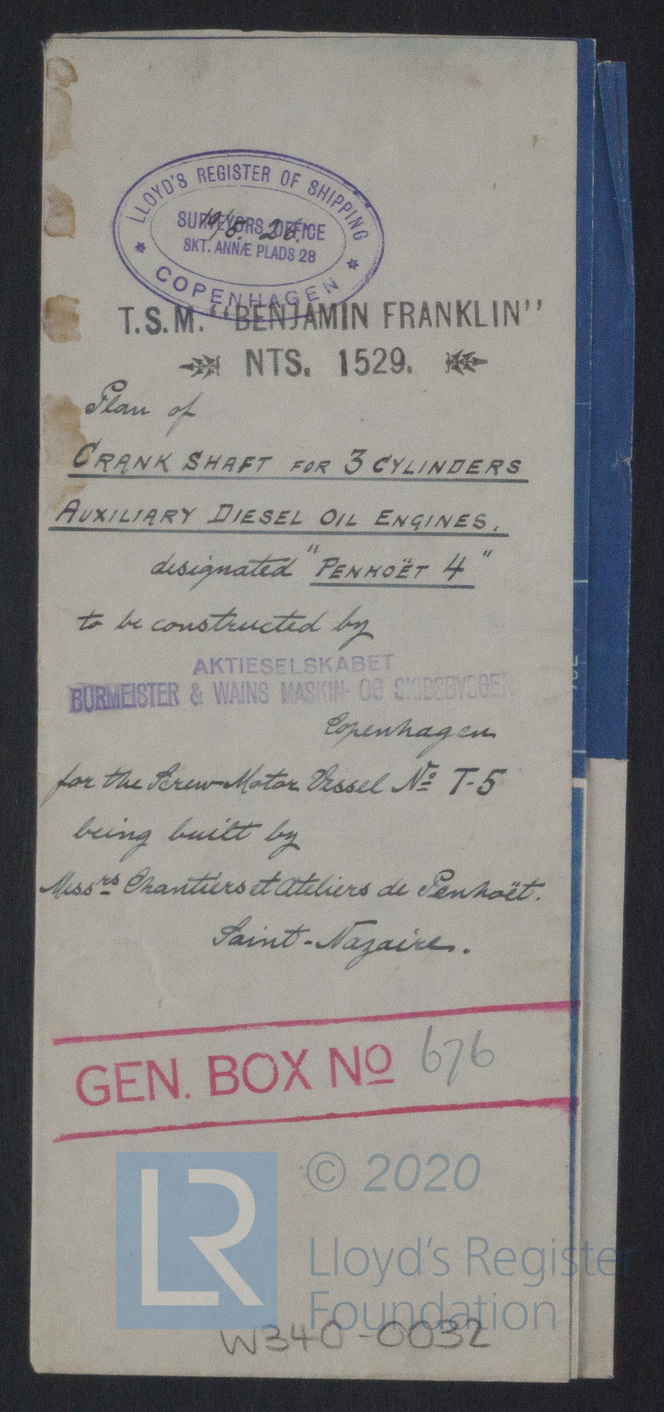 LLOYD'S REGISTER OF SHIPPING
SURVEYORS OFFICE
19/5. 26.
SKT. ANNÆ PLADS 28
COPENHAGEN
T.S.M. "BENJAMIN FRANKLIN"
NTS. 1529.
Plan of
CRANK SHAFT FOR 3 CYLINDERS
AUXILIARY DIESEL OIL ENGINES.
designated "PENHOËT 4"
to be constructed by
AKTIESELSKABET
BURMEISTER & WAINS MASKIN- OG SKIBSBYGGERI
Copenhagen
for the Screw Motor Vessel Nº T-5
being built by
Messrs Chantiers et Ateliers de Penhoët.
Saint-Nazaire.
GEN. BOX Nº 676
LR
© 2020
Lloyd's Register
Foundation
W340-0032